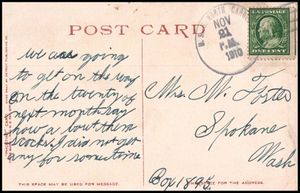 POST CARD
NOV
21
P.M.
1910
ONE CENT
we are going
to get on the way
on the twenty of
next month say
how a bout them
socks I did not get
any for some time
Mrs. M. Foster
Spokane
Wash
Box 1895.
THIS SPACE MAY BE USED FOR MESSAGE.
SPACE FOR THE ADDRESS.